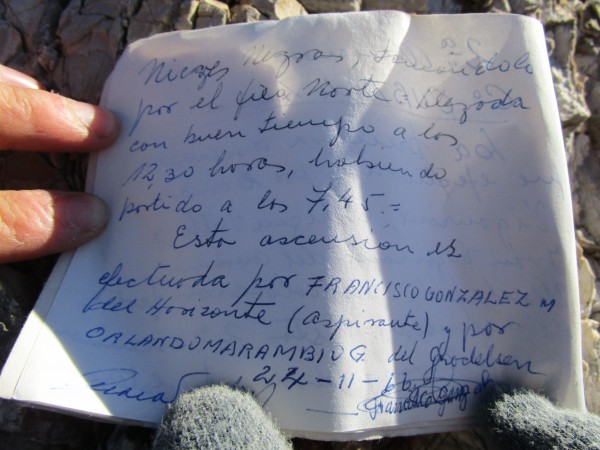 Nieves Negras,
por el filo Norte. Llegada
con buen tiempo a las
12,30 horas, habiendo
partido a las 7,45.=
Esta ascensión es
efectuada por FRANCISCO GONZALEZ M
del Horizonte (aspirante) y por
ORLANDO MARAMBIO G. del
24-11-
Francisco